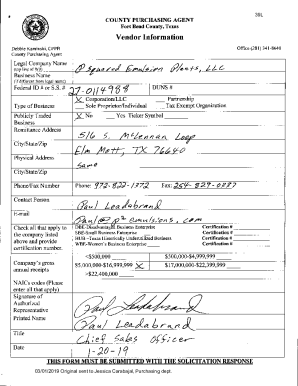 COUNTY PURCHASING AGENT
Fort Bend County, Texas
Vendor Information
Debbie Kaminski, CPPB
County Purchasing Agent
Office (281) 341-8640
Legal Company Name
P Squared Emulsion Plants, LLC
Business Name
Federal ID # or S.S. # 27-0114988 DUNS #
Type of Business X Corporation/LLC Partnership
Sole Proprietor/Individual Tax Exempt Organization
Publicly Traded Business X No Yes Ticker Symbol
Remittance Address 516 S. McLennan Loop
City/State/Zip Elm Mott, TX 76640
Physical Address Same
City/State/Zip
Phone/Fax Number Phone: 972-822-1372 Fax: 254-829-0087
Contact Person Paul Leadabrand
E-mail Paul@p2emulsions.com
Check all that apply to the company listed above and provide certification number.
DBE-Disadvantaged Business Enterprise Certification #
SBE-Small Business Enterprise Certification #
HUB-Texas Historically Underutilized Business Certification #
WBE-Women's Business Enterprise Certification #
Company's gross annual receipts
<$500,000 $500,000-$4,999,999
$5,000,000-$16,999,999 X $17,000,000-$22,399,999
>$22,400,000
NAICs codes (Please enter all that apply)
Signature of Authorized Representative Paul Leadabrand
Printed Name Paul Leadabrand
Title Chief Sales Officer
Date 1-20-19
THIS FORM MUST BE SUBMITTED WITH THE SOLICITATION RESPONSE
03/01/2019 Original sent to Jessica Carabajal, Purchasing dept.